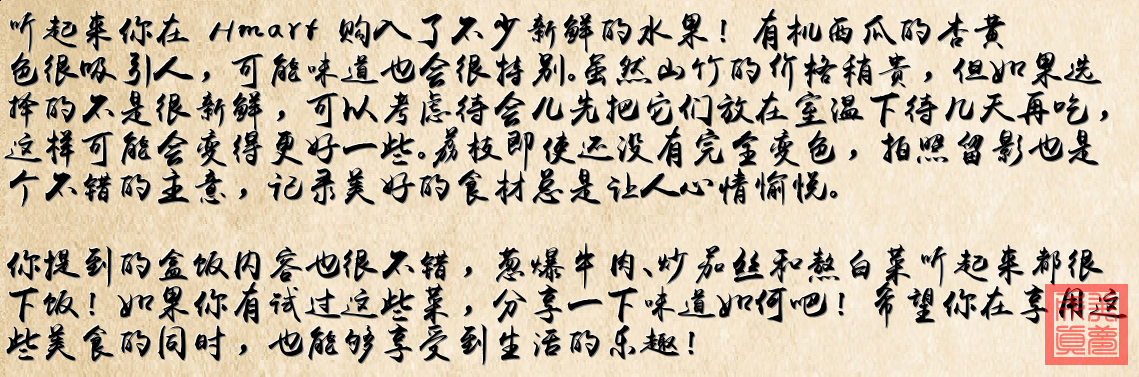 听起来你在 Hmart 购入了不少新鲜的水果！有机西瓜的杏黄
色很吸引人，可能味道也会很特别。虽然山竹的价格稍贵，但如果选
择的不是很新鲜，可以考虑待会儿先把它们放在室温下待几天再吃，
这样可能会变得更好一些。荔枝即使还没有完全变色，拍照留影也是
个不错的主意，记录美好的食材总是让人心情愉悦。
你提到的盒饭内容也很不错，葱爆牛肉、炒茄丝和熬白菜听起来都很
下饭！如果你有试过这些菜，分享一下味道如何吧！希望你在享用这
些美食的同时，也能够享受到生活的乐趣！